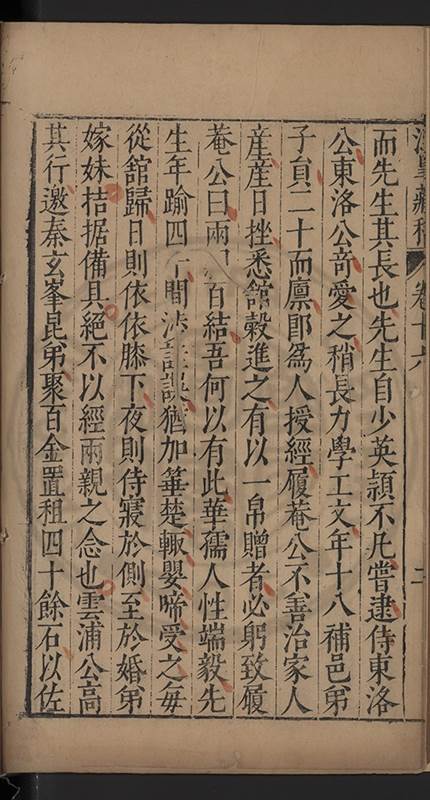 藏稿 卷十六 二
而先生其長也先生自少英頴不凡嘗逮侍東洛
公東洛公竒愛之稍長力學工文年十八補邑弟
子員二十而廪即爲人授經履菴公不善治家人
産産日挫悉舘榖進之有以一帛贈者必躬致履
菴公曰兩 百結吾何以有此華孺人性端毅先
生年踰四十間 猶加箠楚輙嬰啼受之每
從舘歸日則依依膝下夜則侍寢於側至於婚弟
嫁妹拮据備具絕不以經兩親之念也雲浦公高
其行邀秦玄峯昆弟聚百金置租四十餘石以佐